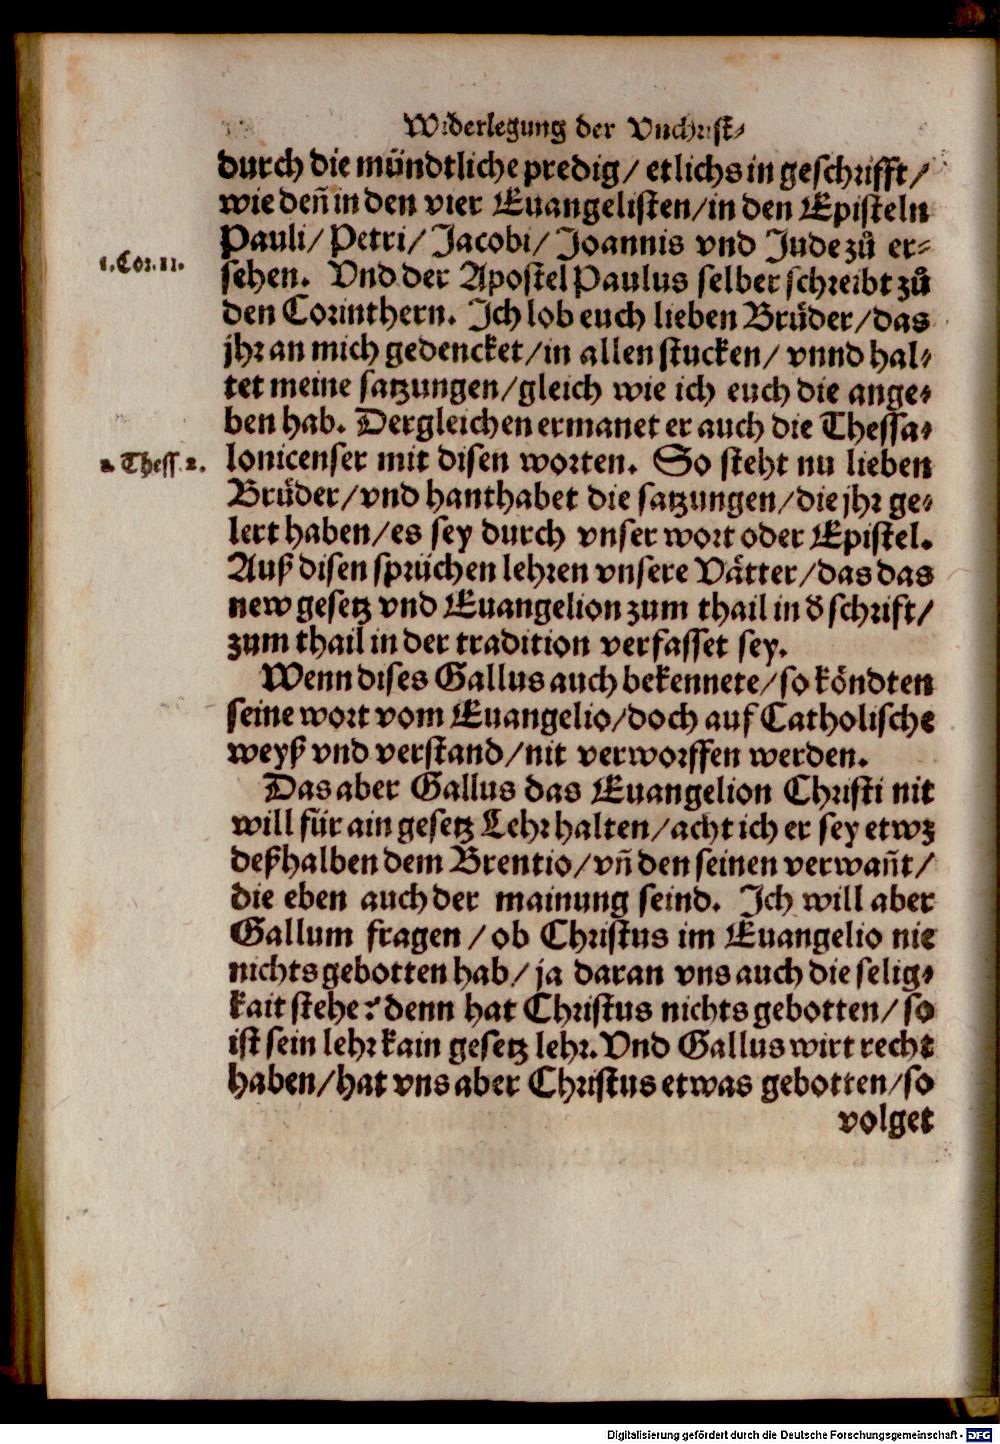 Widerlegung der Vnchrist⸗
durch die mündtliche predig/ etlichs in geschrifft/
wie deñ in den vier Euangelisten/in den Episteln
Pauli/ Petri/ Jacobi/ Joannis vnd Jude zů er⸗
1. Cor. 11.
sehen. Vnd der Apostel Paulus selber schreibt zů
den Corinthern. Ich lob euch lieben Brüder/das
jhr an mich gedencket/in allen stucken/ vnnd hal⸗
tet meine satzungen/gleich wie ich euch die ange⸗
ben hab. Dergleichen ermanet er auch die Thessa⸗
2. Thess. 2.
lonicenser mit disen worten. So steht nu lieben
Brüder/vnd hanthabet die satzungen/die jhr ge⸗
lert haben/es sey durch vnser wort oder Epistel.
Auß disen sprüchen lehren vnsere Vätter/das das
new gesetz vnd Euangelion zum thail in d schrift/
zum thail in der tradition verfasset sey.
Wenn dises Gallus auch bekennete/so köndten
seine wort vom Euangelio/doch auf Catholische
weyß vnd verstand/nit verworffen werden.
Das aber Gallus das Euangelion Christi nit
will für ain gesetz Lehr halten/acht ich er sey etwz
deßhalben dem Brentio/vñ den seinen verwañt/
die eben auch der mainung seind. Ich will aber
Gallum fragen/ob Christus im Euangelio nie
nichts gebotten hab/ja daran vns auch die selig⸗
kait stehe? denn hat Christus nichts gebotten/so
ist sein lehr kain gesetz lehr. Vnd Gallus wirt recht
haben/hat vns aber Christus etwas gebotten/so
volget
Digitalisierung gefördert durch die Deutsche Forschungsgemeinschaft - DFG